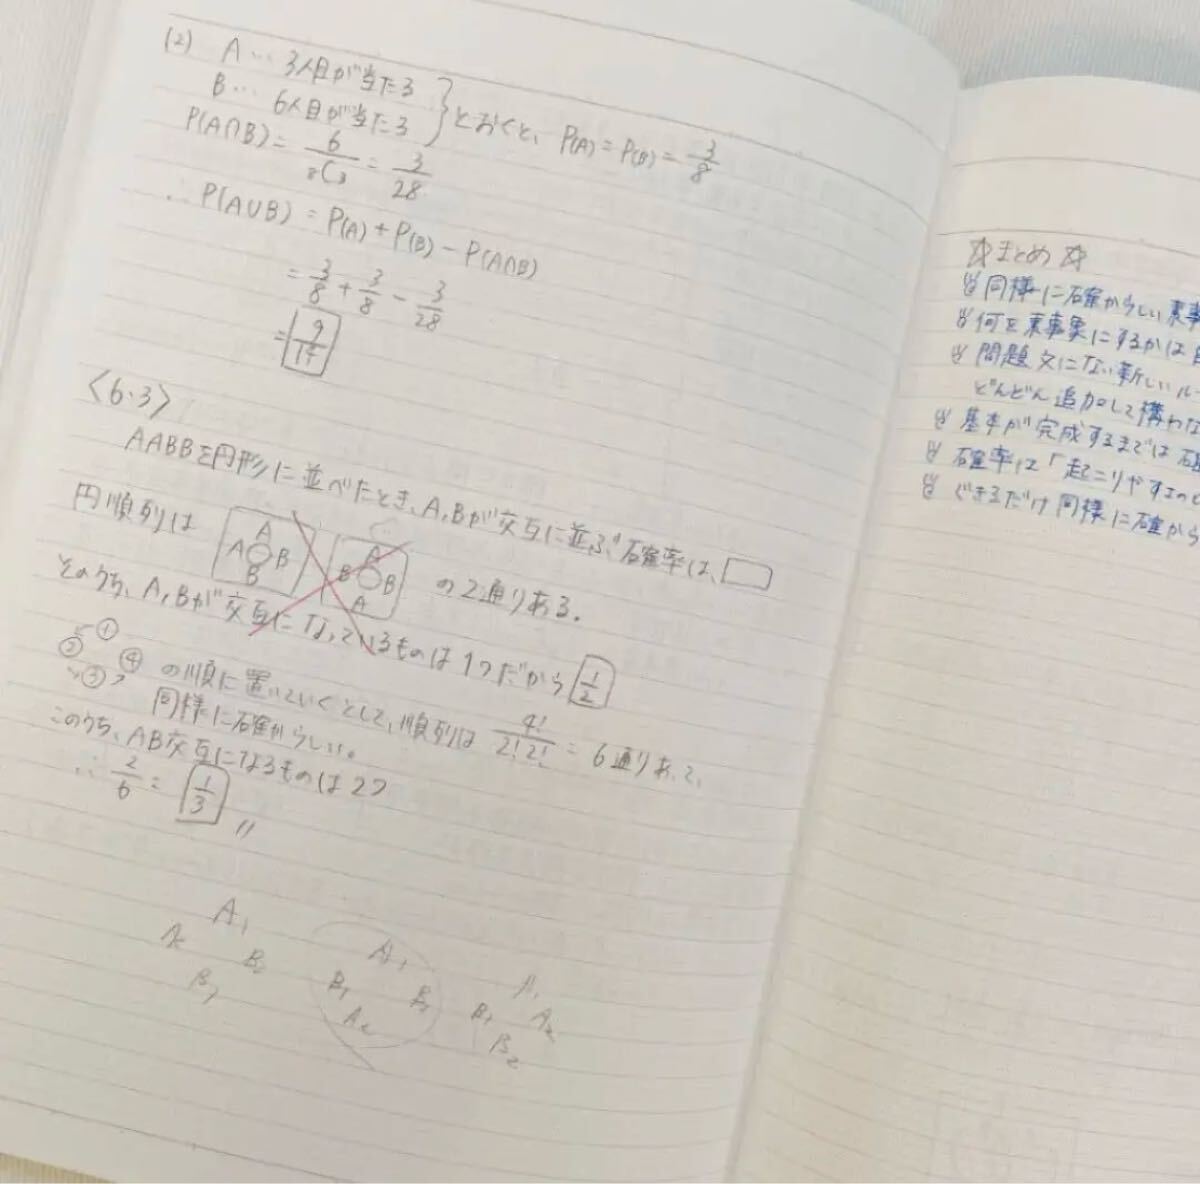 (2) A… 3人目が当たる
B… 6人目が当たる
とおくと、P(A)=P(B)= 3/8
P(A∩B)= 6/8C3 = 3/28
∴ P(A∪B) = P(A)+P(B)-P(A∩B)
= 3/8 + 3/8 - 3/28
= 9/14
〈6・3〉
AABBを円形に並べたとき、A,Bが交互に並ぶ確率は、□
円順列は A A B B A B B A の2通りある。
そのうち、A,Bが交互になっているものは1つだから 1/2
① ② ③ ④ の順に置いていくとして、順列は 4!/2!2! = 6通りあって、
同様に確からしい。
このうち、AB交互になるものは2つ
∴ 2/6 = 1/3 〃
A1 B2
A1 B1 A2
B1 A2 B2
☆まとめ☆
同様に確からしい
何を事象にするかは
問題文にない新しいル
どんどん追加して構わな
基本が完成するまでは
確率は「起こりやすさの
できるだけ同様に確から